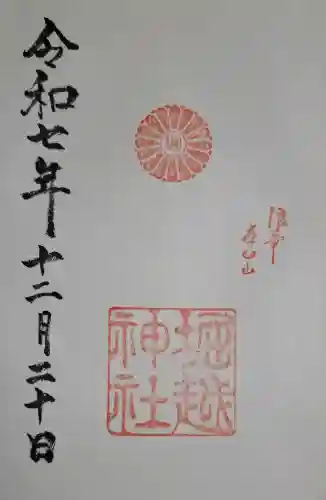 浪華
堀越
神社
令和七年十二月二十日